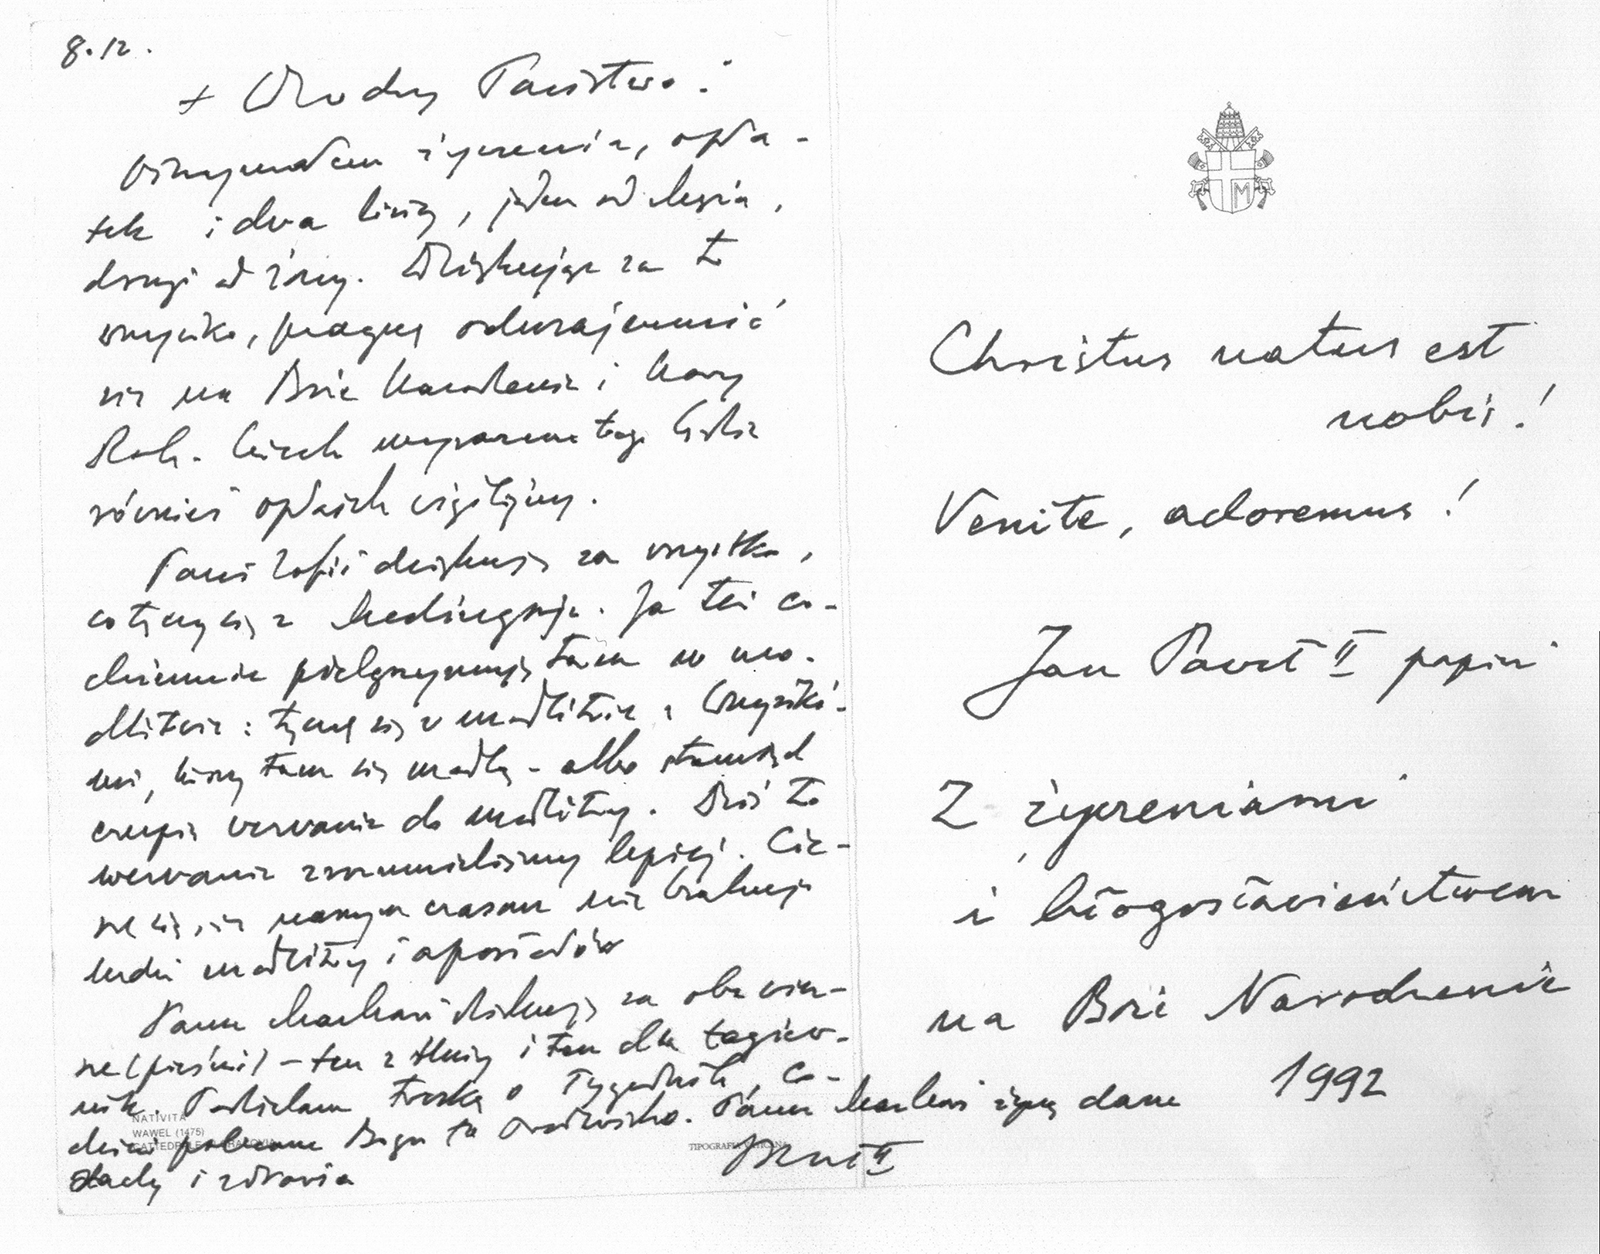 8.12.
+ Drodzy Państwo!
Otrzymałem życzenia, opła-
tek i dwa listy, jeden od męża,
drugi od żony. Dziękując za to
wszystko, pragnę odwzajemnić
się na Boże Narodzenie i Nowy
Rok. Niech wyrazem tego będzie
również opłatek wigilijny.
Pani Zofii dziękuję za wszystko,
co łączy się z Medziugorje. Ja też co-
dziennie pielgrzymuję tam w mo-
dlitwie: łączę się w modlitwie z wszystki-
mi, którzy tam się modlą - albo stamtąd
czerpią wezwanie do modlitwy. Dziś to
wezwanie zrozumieliśmy lepiej. Cie-
szę się, że naszym czasom nie brakuje
ludzi modlitwy i apostołów
Panu Markowi dziękuję za oba
(pieśni) - ten z i ten dla Łagiew-
nik. Podzielam troskę o Tygodnik, co-
dzień polecam Bogu to środowisko. Panu Markowi życzę dane
i zdrowia
NATIVITÀ
WAWEL (1475)
CATTEDRALE CRACOVIA
TIPOGRAFIA VATICANA
JPII
Christus natus est
nobis!
Venite, adoremus!
Jan Paweł II papież
Z życzeniami
i błogosławieństwem
na Boże Narodzenie
1992